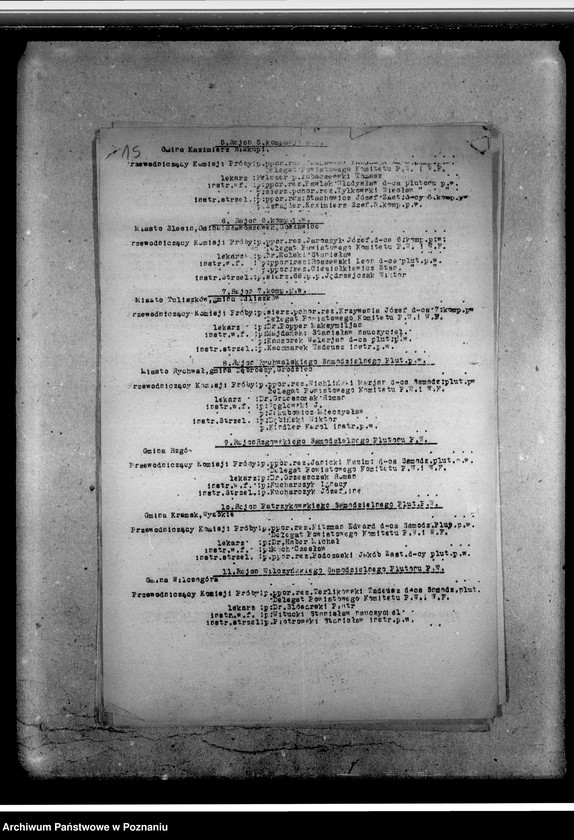 15
5.Rejon 5.kompanji
Gmina Kazimierz Biskupi.
Przewodniczący Komisji Próby:p.ppor.rez.
Delegat Powiatowego Komitetu P.W. i W.F.
lekarz :
Tomasz
instr.w.f. :p:ppor.rez.Pawlak Władysław d-ca plutonu p.w.
p:sierz.pchor.rez.Tylkowski Wiesław
instr.strzel.:p:ppor.rez:Stachowicz Józef-Zast:d-cy 5.komp.p.w
Kazimierz Szef.5.komp.p.w.
6. Rejon 6.komp.p.w.
Miasto Slesin, Gosławice
Przewodniczący Komisji Próby:p.ppor.rez.Jaroszyk Józef.d-ca 6.komp.p.w:
Delegat Powiatowego Komitetu P.W. i W.F.
lekarz :p:Dr.Kulski Stanisław
instr.w.f. :p:ppor:rez:Roszewski Leon d-ca plut.p.w.
p.ppor.rez:Ciesiołkiewicz Stan.
instr.Strzel.:p.sierz.68.p.p.Jędrzejczak Wiktor
7.Rejon 7.komp.p.w.
Miasto Tuliszków,gmina Tuliszków
Przewodniczący Komisji Próby:p.sierz.pchor.rez.Krzywania Józef d-ca 7:komp.pw
Delegat Powiatowego Komitetu P.W.i W.F.
lekarz :p:Dr.Popper Maksymiljan
instr.w.f. :p:Majdański Stanisław nauczyciel.
p:Kaczorek Walerjan d-ca plut.p.w.
instr.strzel.:p:Kaczmarek Tadeusz instr.p.w.
8.Rejon Rychwalskiego Samodzielnego Plut.p.w.
Miasto Rychwał,gmina Dąbroszy,Grodziec
Przewodniczący Komisji Próby:p.ppor.rez.Wichliński Marjan d-ca Samodz:plut.pw
Delegat Powiatowego Komitetu P.W. i W.F.
lekarz :Dr.Grzeszczak Roman
instr.w.f. :p:Węglewski J.
p:Jakubowicz Mieczysław
instr.Strzel.:p:Dębiński Wiktor
p.Findler Karol instr.p.w.
9.Rejon Rzgowskiego Samodzielnego Plutonu P.W.
Gmina Rzgów
Przewodniczący Komisji Próby:p.ppor.rez.Janicki d-ca Samodz.plut.p.w.
Delegat Powiatowego Komitetu P.W. i W.F.
lekarz :p:Dr.Grzeszczak Roman
instr.w.f. :p:Kucharczyk Ignacy
instr.Strzel.:p.Kucharczyk Józef.
10.Rejon Patrzykowskiego Samodzielnego Plut.P.W.
Gmina Kramsk,Wysokie
Przewodniczący Komisji Próby:p.ppor.rez.Nitzman Edward d-ca Samodz.Plut.p.w.
Delegat Powiatowego Komitetu P.W. i W.F.
lekarz :p:Dr.Haber Michał
instr.w.f. :p:Czesław
instr.strzel. :p.ppor.rez.Podczaski Jakób Zast.d-cy plut.p.w.
11.Rejon Wilczyńskiego Samodzielnego Plutonu P.W.
Gmina Wilczogóra
Przewodniczący Komisji Próby:p.ppor.rez.Terlikowski Tadeusz d-ca Samodz.plut.
Delegat Powiatowego Komitetu P.W.i W.F.
lekarz :p:Dr.Ślósarski Piotr
instr.w.f. :p:Witucki Stanisław nauczyciel
instr.strzel:p.Piotrowski Stanisław instr.p.w.
Archiwum Państwowe w Poznaniu